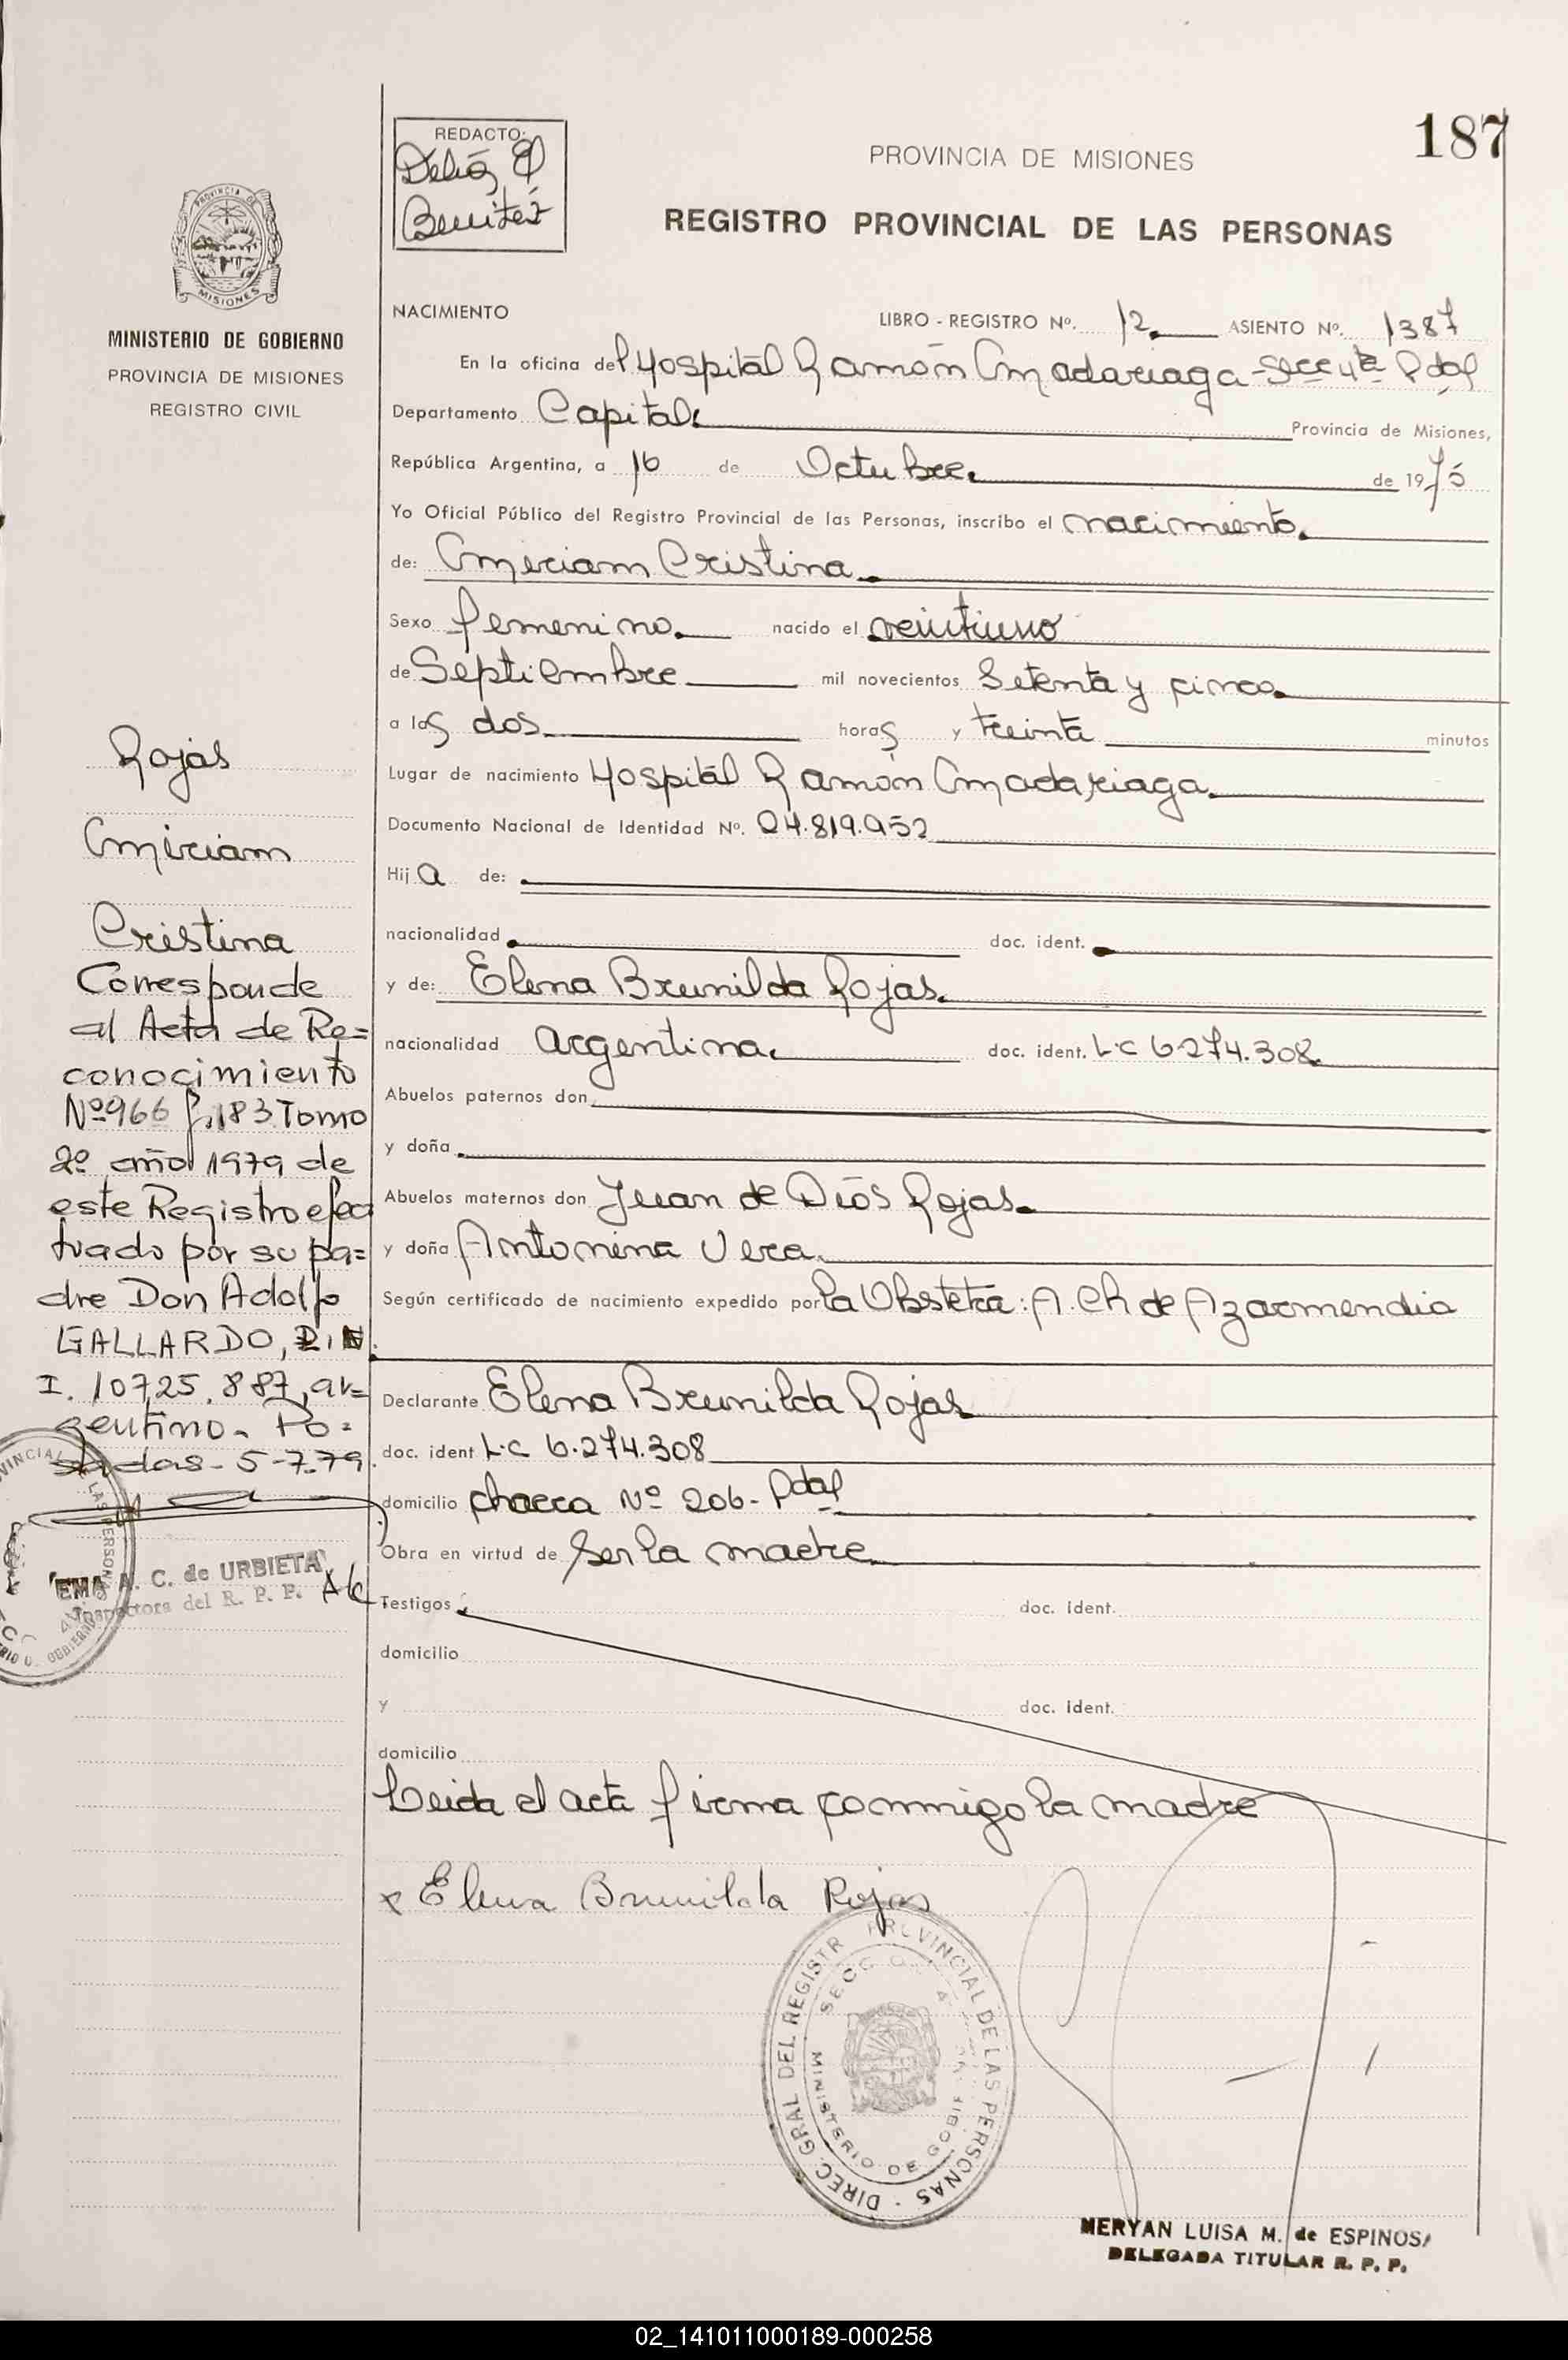 187
REDACTO:
Benitez
PROVINCIA DE MISIONES
REGISTRO PROVINCIAL DE LAS PERSONAS
PROVINCIA DE
MISIONES
MINISTERIO DE GOBIERNO
PROVINCIA DE MISIONES
REGISTRO CIVIL
NACIMIENTO LIBRO - REGISTRO Nº. 12 ASIENTO Nº. 1387
En la oficina del Hospital Ramón Madariaga - Secc 4ta Pdas
Departamento Capital Provincia de Misiones,
República Argentina, a 16 de Octubre de 1975
Yo Oficial Público del Registro Provincial de las Personas, inscribo el nacimiento
de: Miriam Cristina
Sexo femenino nacido el veintiuno
de Septiembre mil novecientos Setenta y cinco
a las dos horas y treinta minutos
Lugar de nacimiento Hospital Ramón Madariaga
Documento Nacional de Identidad Nº. 24.819.952
Hija de:
nacionalidad doc. ident.
y de: Elena Brunilda Rojas
nacionalidad argentina doc. ident. L-C 6.274.308
Abuelos paternos don
y doña
Abuelos maternos don Juan de Dios Rojas
y doña Antonina Vera
Según certificado de nacimiento expedido por la Obstetra: A. Ch de Azarmendia
Declarante Elena Brunilda Rojas
doc. ident L-C 6.274.308
domicilio chacra Nº 206 - Pdas
Obra en virtud de ser la madre
Testigos doc. ident.
domicilio
y doc. ident.
domicilio
Leida el acta firma conmigo la madre
x Elena Brunilda Rojas
Rojas
Miriam
Cristina
Corresponde
al Acta de Re=
conocimiento
Nº 966 f. 183 Tomo
2º año 1979 de
este Registro efec
tuado por su pa=
dre Don Adolfo
GALLARDO, D.N.
I. 10.725.887, ar=
gentino. Po=
sadas - 5-7-79
EMA A. C. de URBIETA
Inspectora del R. P. P.
DIREC. GRAL DEL REGISTR PROVINCIAL DE LAS PERSONAS
MINISTERIO DE GOBIE
MERYAN LUISA M. de ESPINOSA
DELEGADA TITULAR R. P. P.
02_141011000189-000258